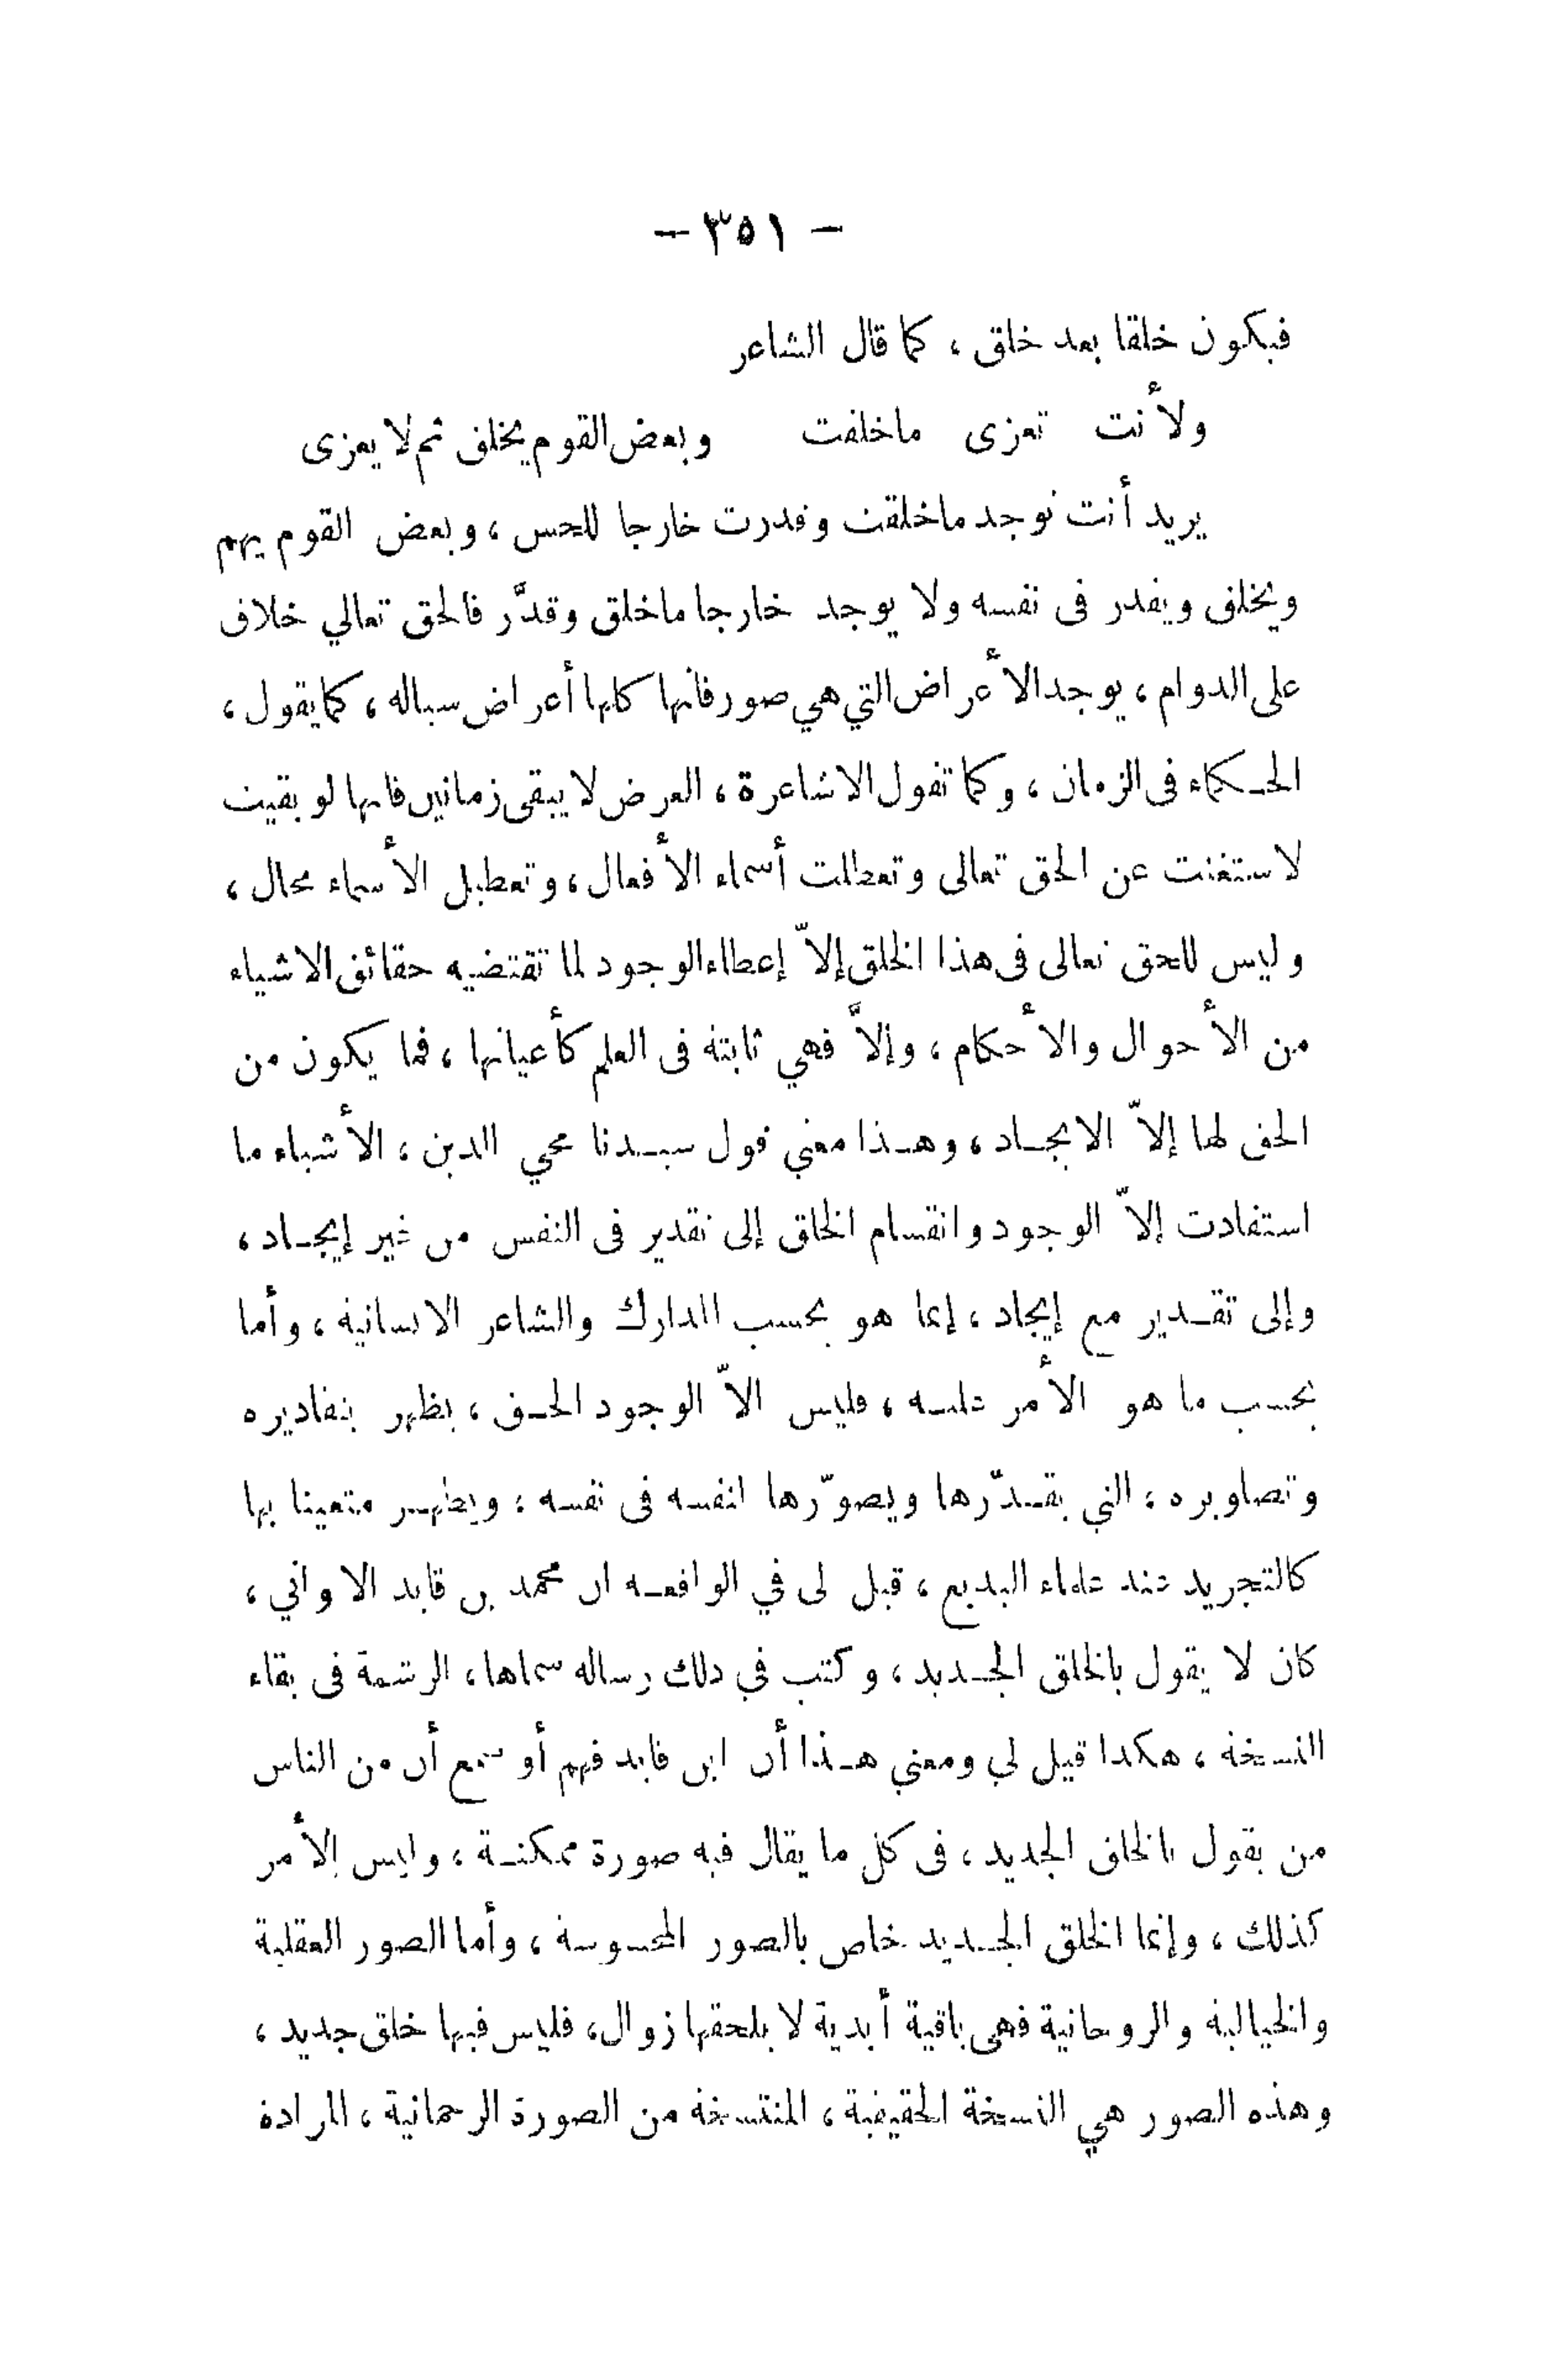 — ٣٥١ —
فيكون خلقا بعد خلق ، كما قال الشاعر
ولأنت تعزى ماخلقت وبعض القوم يخلق ثم لا يعزى
يريد أنت توجد ماخلقت وقدرت خارجا للحس ، وبعض القوم يهم
ويخلق ويقدر فى نفسه ولا يوجد خارجا ماخلق وقدَّر فالحق تعالي خلاق
على الدوام ، يوجد الأعراض التي هي صور فانها كلها أعراض سياله ، كما يقول ،
الحـكماء فى الزمان ، وكما تقول الاشاعرة ، العرض لا يبقى زمانين فانها لو بقيت
لاستغنت عن الحق تعالى وتعطلت أسماء الأفعال ، وتعطيل الأسماء محال ،
وليس للحق تعالى فى هذا الخلق إلاّ إعطاء الوجود لما تقتضيه حقائق الاشياء
من الأحوال والأحكام ، وإلاَّ فهي ثابتة فى العلم كأعيانها ، فما يكون من
الحق لها إلاّ الايجـاد ، وهـذا معني قول سيـدنا محي الدين ، الأشياء ما
استفادت إلاّ الوجود وانقسام الخلق إلى تقدير فى النفس من غير إيجـاد ،
وإلى تقـدير مع إيجاد ، إنما هو بحسب المدارك والشاعر الانسانية ، وأما
بحسب ما هو الأمر عليـه ، فليس الاّ الوجود الحـق ، يظهر بتقاديره
وتصاويره ، التي يقـدّرها ويصوّرها لنفسه فى نفسه ، ويظهـر متعينا بها
كالتجريد عند علماء البديع ، قيل لى في الواقعـه ان محمد بن قايد الاواني ،
كان لا يقول بالخلق الجـديد ، وكتب في ذلك رساله سماها ، الرتمة فى بقاء
النسخة ، هكذا قيل لي ومعني هـذا أن ابن قايد فهم أو سمع أن من الناس
من يقول بالخلق الجديد ، فى كل ما يقال فيه صورة ممكنـة ، وليس الأمر
كذلك ، وإنما الخلق الجـديد خاص بالصور المحسوسة ، وأما الصور العقلية
والخيالية والروحانية فهى باقية أبدية لا يلحقها زوال ، فليس فيها خلق جديد ،
وهذه الصور هي النسخة الحقيقية ، المنتسخة من الصورة الرحمانية ، المرادة